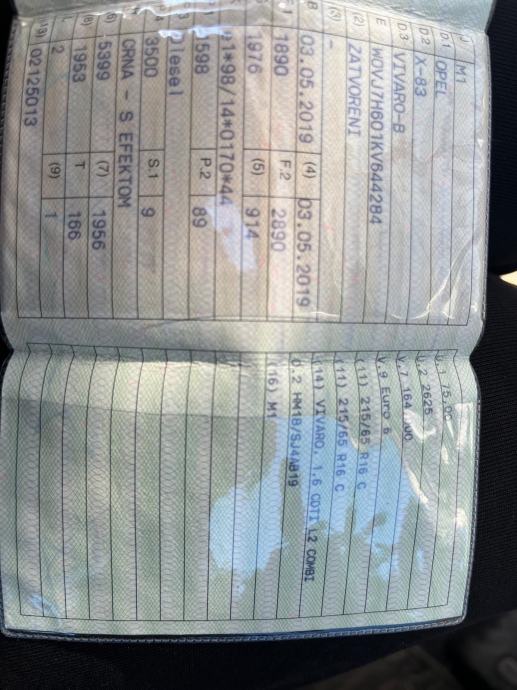 J M1
D.1 OPEL
D.2 X-83
D.3 VIVARO-B
E W0VJ7H601KV644284
(2) ZATVORENI
(3) -
B 03.05.2019 (4) 03.05.2019
1890 F.2 2890
1976 (5) 914
*1*98/14*0170*44
1598 P.2 89
Diesel
3500 S.1 9
(6) CRNA - S EFEKTOM
5399 (7) 1956
(8) 1953 T 166
L 2 (9) 1
02125013
U.1 75.0
U.2 2625
V.7 164
V.9 Euro 6
(11) 215/65 R16 C
(11) 215/65 R16 C
(14) VIVARO, 1.6 CDTI L2 COMBI
D.2 HM1B/SJ4AB19
(16) M1